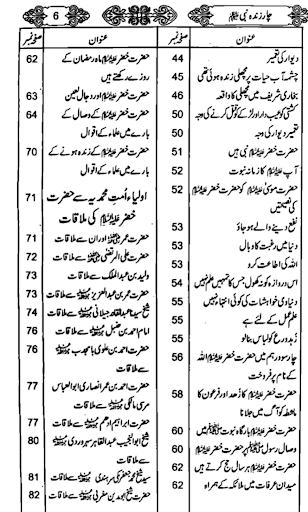 چار زندہ نبی ﷺ
6
عنوان صفحہ نمبر
دیوار کی تعمیر 44
چشمہ آب حیات پر مچھلی زندہ ہو گئی تھی 45
بخاری شریف میں مچھلی کا واقعہ 46
کشتی کو عیب دار اور لڑکے کو قتل کرنے کی وجہ 50
دیوار کی تعمیر کی وجہ 50
حضرت خضر علیہ السلام نبی ہیں 51
آپ علیہ السلام کا زمانہ نبوت 52
حضرت موسیٰ علیہ السلام کو حضرت خضر علیہ السلام 52
کی نصیحتیں
نفع دینے والے ہو جاؤ 53
دنیا میں رغبت کا وبال 53
اللہ کی اطاعت کرو 53
اس دروازہ کو نہ کھول، جس کا تمہیں علم نہیں 54
دنیاوی خواہشات کی کوئی انتہا نہیں 55
علم عمل کے لئے ہے 55
زہد و ورع کو لباس بنالو 55
چار سو درہم میں حضرت خضر علیہ السلام اللہ 56
کے نام پر فروخت
حضرت خضر علیہ السلام کا زہد اور فرعون کا 58
ماشطہ کو آگ میں جلانا
حضرت خضر علیہ السلام بارگاہ نبوت ﷺ میں 60
وصال رسول ﷺ پر حضرت خضر علیہ السلام 60
حضرت خضر علیہ السلام ہر سال حج کرتے ہیں 62
میدان عرفات میں ملائکہ کے ہمراہ 62
عنوان صفحہ نمبر
حضرت خضر علیہ السلام ماہ رمضان کے 62
روزے رکھتے ہیں
حضرت خضر علیہ السلام اور دجال لعین 63
حضرت خضر علیہ السلام کے وصال کے 64
بارے میں علماء کے اقوال
حضرت خضر علیہ السلام کے زندہ ہونے کے 70
بارے میں علماء کے اقوال
اولیاء امت محمدیہ سے حضرت 71
خضر علیہ السلام کی ملاقات
حضرت عمر اور ان سے ملاقات 71
حضرت علی المرتضیٰ سے ملاقات 72
ولید بن عبدالملک سے ملاقات 72
حضرت عمر بن عبدالعزیز سے ملاقات 73
شیخ سید عبدالقادر جیلانی سے ملاقات 74
امام احمد بن حنبل سے ملاقات 76
حضرت احمد بن علوی باحجدب 76
سے ملاقات
حضرت احمد بن عمر انصاری ابوالعباس 77
مرسی مالکی سے ملاقات
حضرت ابراہیم ادھم سے ملاقات 77
شیخ ابو النجیب عبدالقاہر سہروردی 80
سے ملاقات
سید محمد جعفر مکی سرہندی سے ملاقات 81
شیخ ابو مدین مغربی سے ملاقات 82